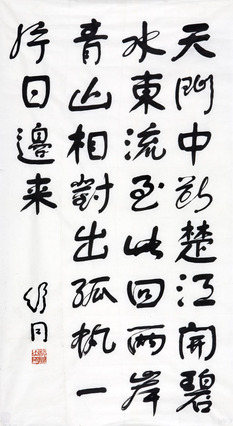 天門中斷楚江開碧
水東流至此回兩岸
青山相對出孤帆一
片日邊来
舒同